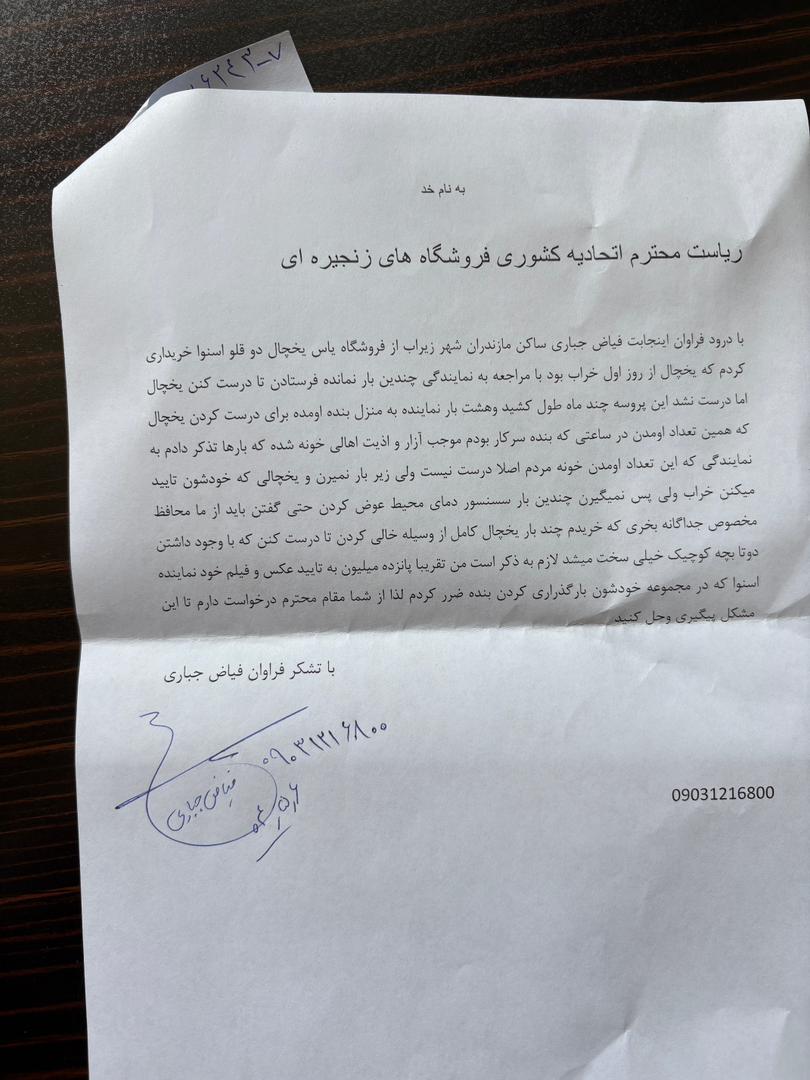 ۶۲۴۳-۷
به نام خد
ریاست محترم اتحادیه کشوری فروشگاه های زنجیره ای
با درود فراوان اینجابت فیاض جباری ساکن مازندران شهر زیراب از فروشگاه یاس یخچال دو قلو اسنوا خریداری
کردم که یخچال از روز اول خراب بود با مراجعه به نمایندگی چندین بار نمانده فرستادن تا درست کنن یخچال
اما درست نشد این پروسه چند ماه طول کشید وهشت بار نماینده به منزل بنده اومده برای درست کردن یخچال
که همین تعداد اومدن در ساعتی که بنده سرکار بودم موجب آزار و اذیت اهالی خونه شده که بارها تذکر دادم به
نمایندگی که این تعداد اومدن خونه مردم اصلا درست نیست ولی زیر بار نمیرن و یخچالی که خودشون تایید
میکنن خراب ولی پس نمیگیرن چندین بار سسنسور دمای محیط عوض کردن حتی گفتن باید از ما محافظ
مخصوص جداگانه بخری که خریدم چند بار یخچال کامل از وسیله خالی کردن تا درست کنن که با وجود داشتن
دوتا بچه کوچیک خیلی سخت میشد لازم به ذکر است من تقریبا پانزده میلیون به تایید عکس و فیلم خود نماینده
اسنوا که در مجموعه خودشون بارگذراری کردن بنده ضرر کردم لذا از شما مقام محترم درخواست دارم تا این
مشکل پیگیری وحل کنید
با تشکر فراوان فیاض جباری
۰۹۰۳۱۲۱۶۸۰۰
فیاض جباری
09031216800